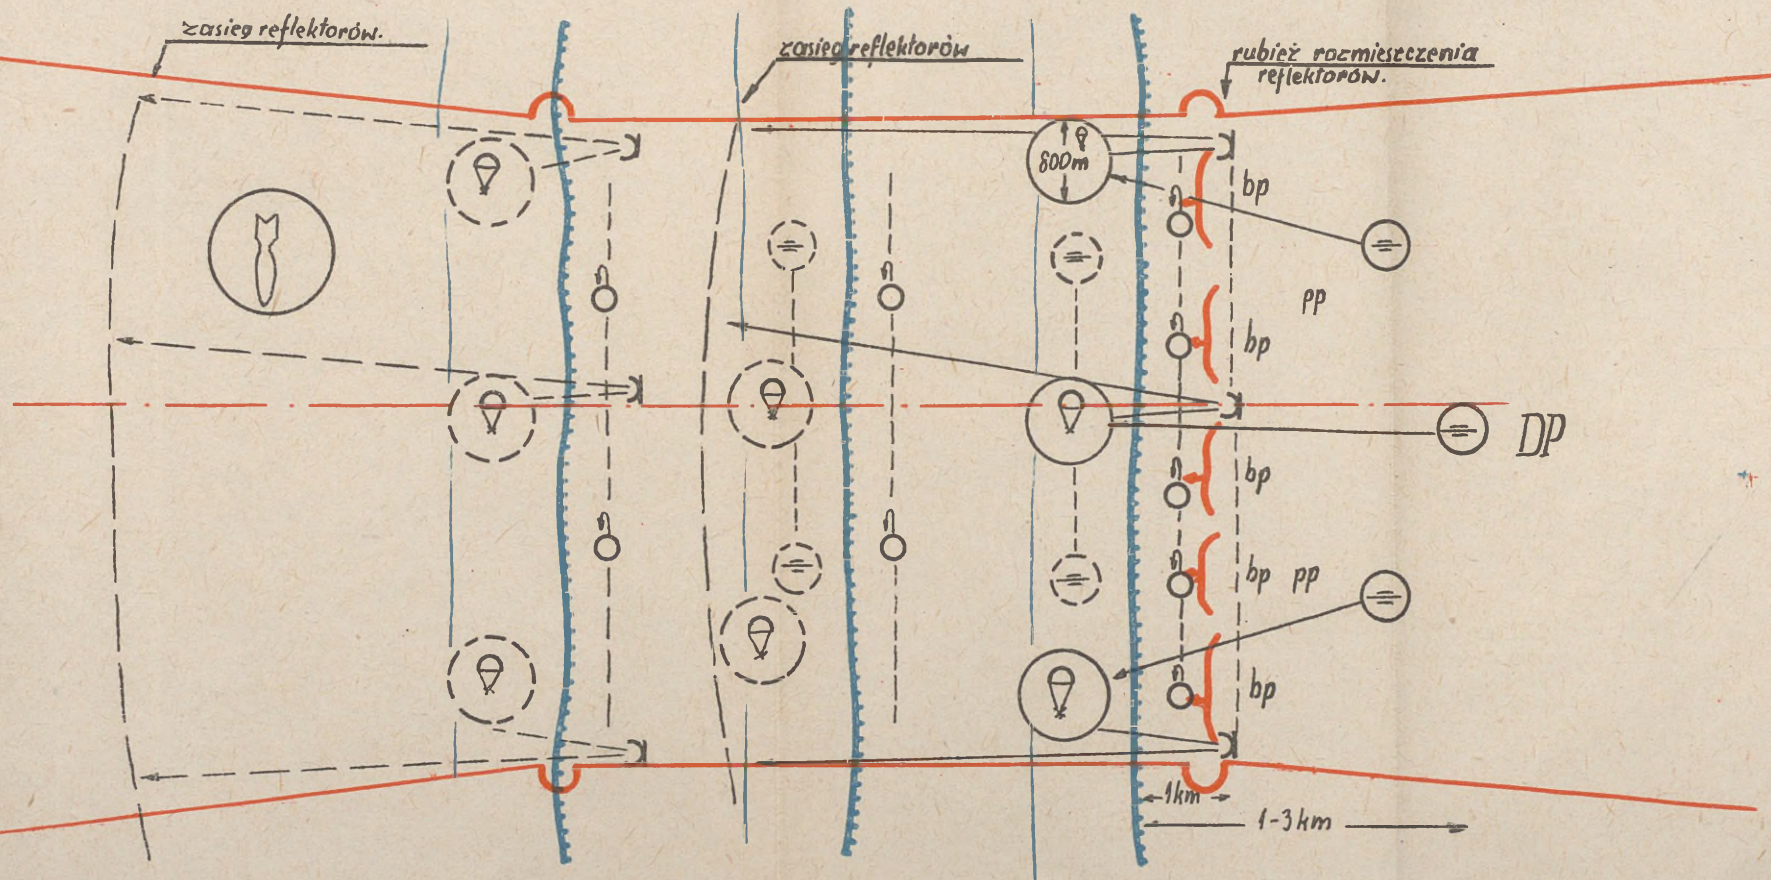 zasieg reflektorów.
zasięg reflektorów
rubież rozmieszczenia
reflektorów.
800m
bp
pp
bp
DP
bp
bp pp
bp
1km
1-3km